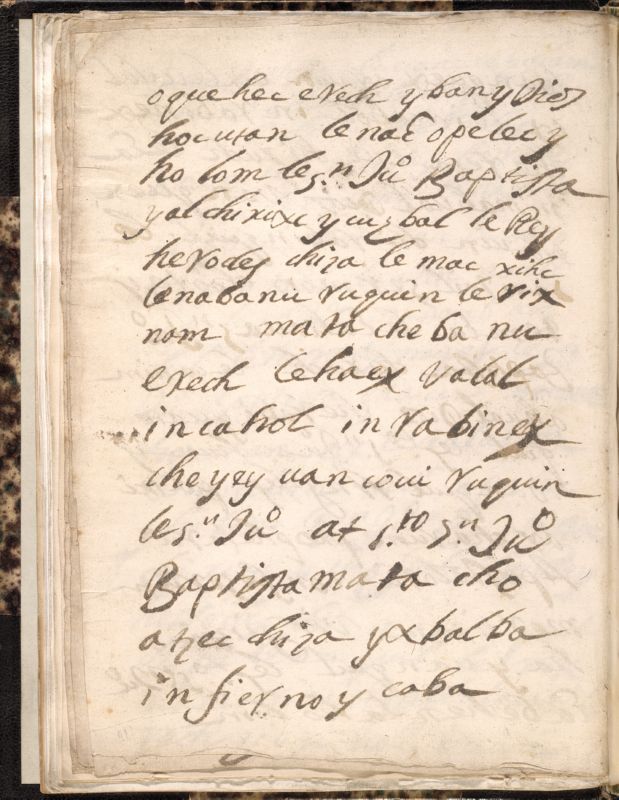 oque hec erech y ban y Dios
hocutan le nac opelec y
ho lom le s.n Juo Baptista
y al chirixc y cuzbal le Rey
herodes chiza le mac xihc
le naba nu ruquin le rix
nam mata che ba nu
erech le haex valal
in cahol in rabinex
cheyey uan coui ruquin
le s.n Juo at s.to s.n Juo
Baptista mata cho
atzec chiza yxbalba
infierno y caba